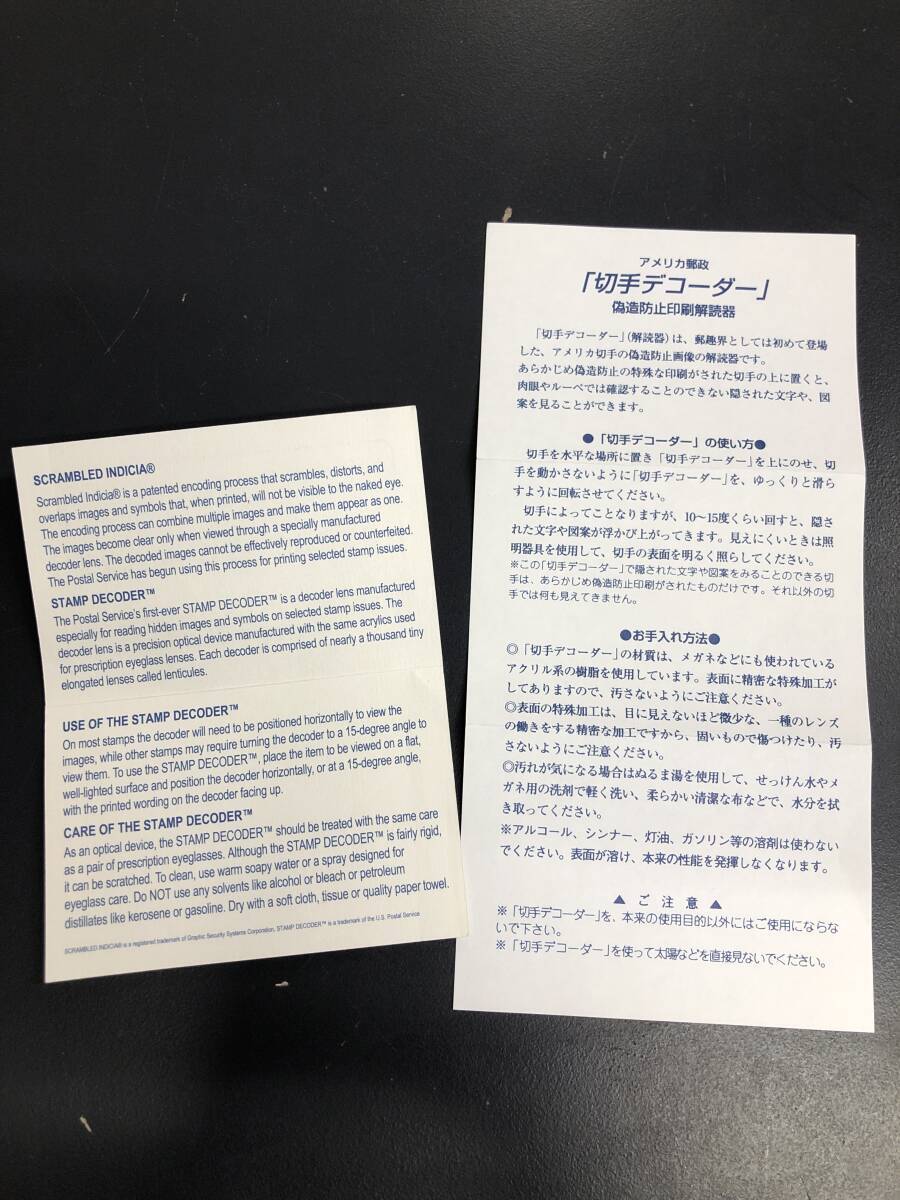 SCRAMBLED INDICIA®
Scrambled Indicia® is a patented encoding process that scrambles, distorts, and
overlaps images and symbols that, when printed, will not be visible to the naked eye.
The encoding process can combine multiple images and make them appear as one.
The images become clear only when viewed through a specially manufactured
decoder lens. The decoded images cannot be effectively reproduced or counterfeited.
The Postal Service has begun using this process for printing selected stamp issues.
STAMP DECODER™
The Postal Service's first-ever STAMP DECODER™ is a decoder lens manufactured
especially for reading hidden images and symbols on selected stamp issues. The
decoder lens is a precision optical device manufactured with the same acrylics used
for prescription eyeglass lenses. Each decoder is comprised of nearly a thousand tiny
elongated lenses called lenticules.
USE OF THE STAMP DECODER™
On most stamps the decoder will need to be positioned horizontally to view the
images, while other stamps may require turning the decoder to a 15-degree angle to
view them. To use the STAMP DECODER™, place the item to be viewed on a flat,
well-lighted surface and position the decoder horizontally, or at a 15-degree angle,
with the printed wording on the decoder facing up.
CARE OF THE STAMP DECODER™
As an optical device, the STAMP DECODER™ should be treated with the same care
as a pair of prescription eyeglasses. Although the STAMP DECODER™ is fairly rigid,
it can be scratched. To clean, use warm soapy water or a spray designed for
eyeglass care. Do NOT use any solvents like alcohol or bleach or petroleum
distillates like kerosene or gasoline. Dry with a soft cloth, tissue or quality paper towel.
SCRAMBLED INDICIA® is a registered trademark of Graphic Security Systems Corporation, STAMP DECODER™ is a trademark of the U.S. Postal Service
アメリカ郵政
「切手デコーダー」
偽造防止印刷解読器
「切手デコーダー」(解読器)は、郵趣界としては初めて登場
した、アメリカ切手の偽造防止画像の解読器です。
あらかじめ偽造防止の特殊な印刷がされた切手の上に置くと、
肉眼やルーペでは確認することのできない隠された文字や、図
案を見ることができます。
●「切手デコーダー」の使い方●
切手を水平な場所に置き「切手デコーダー」を上にのせ、切
手を動かさないように「切手デコーダー」を、ゆっくりと滑ら
すように回転させてください。
切手によってことなりますが、10〜15度くらい回すと、隠さ
れた文字や図案が浮かび上がってきます。見えにくいときは照
明器具を使用して、切手の表面を明るく照らしてください。
※この「切手デコーダー」で隠された文字や図案をみることのできる切
手は、あらかじめ偽造防止印刷がされたものだけです。それ以外の切
手では何も見えてきません。
●お手入れ方法●
◎「切手デコーダー」の材質は、メガネなどにも使われている
アクリル系の樹脂を使用しています。表面に精密な特殊加工が
してありますので、汚さないようにご注意ください。
◎表面の特殊加工は、目に見えないほど微少な、一種のレンズ
の働きをする精密な加工ですから、固いもので傷つけたり、汚
さないようにご注意ください。
◎汚れが気になる場合はぬるま湯を使用して、せっけん水やメ
ガネ用の洗剤で軽く洗い、柔らかい清潔な布などで、水分を拭
き取ってください。
※アルコール、シンナー、灯油、ガソリン等の溶剤は使わない
でください。表面が溶け、本来の性能を発揮しなくなります。
▲ ご 注 意 ▲
※「切手デコーダー」を、本来の使用目的以外にはご使用にならな
いで下さい。
※「切手デコーダー」を使って太陽などを直接見ないでください。